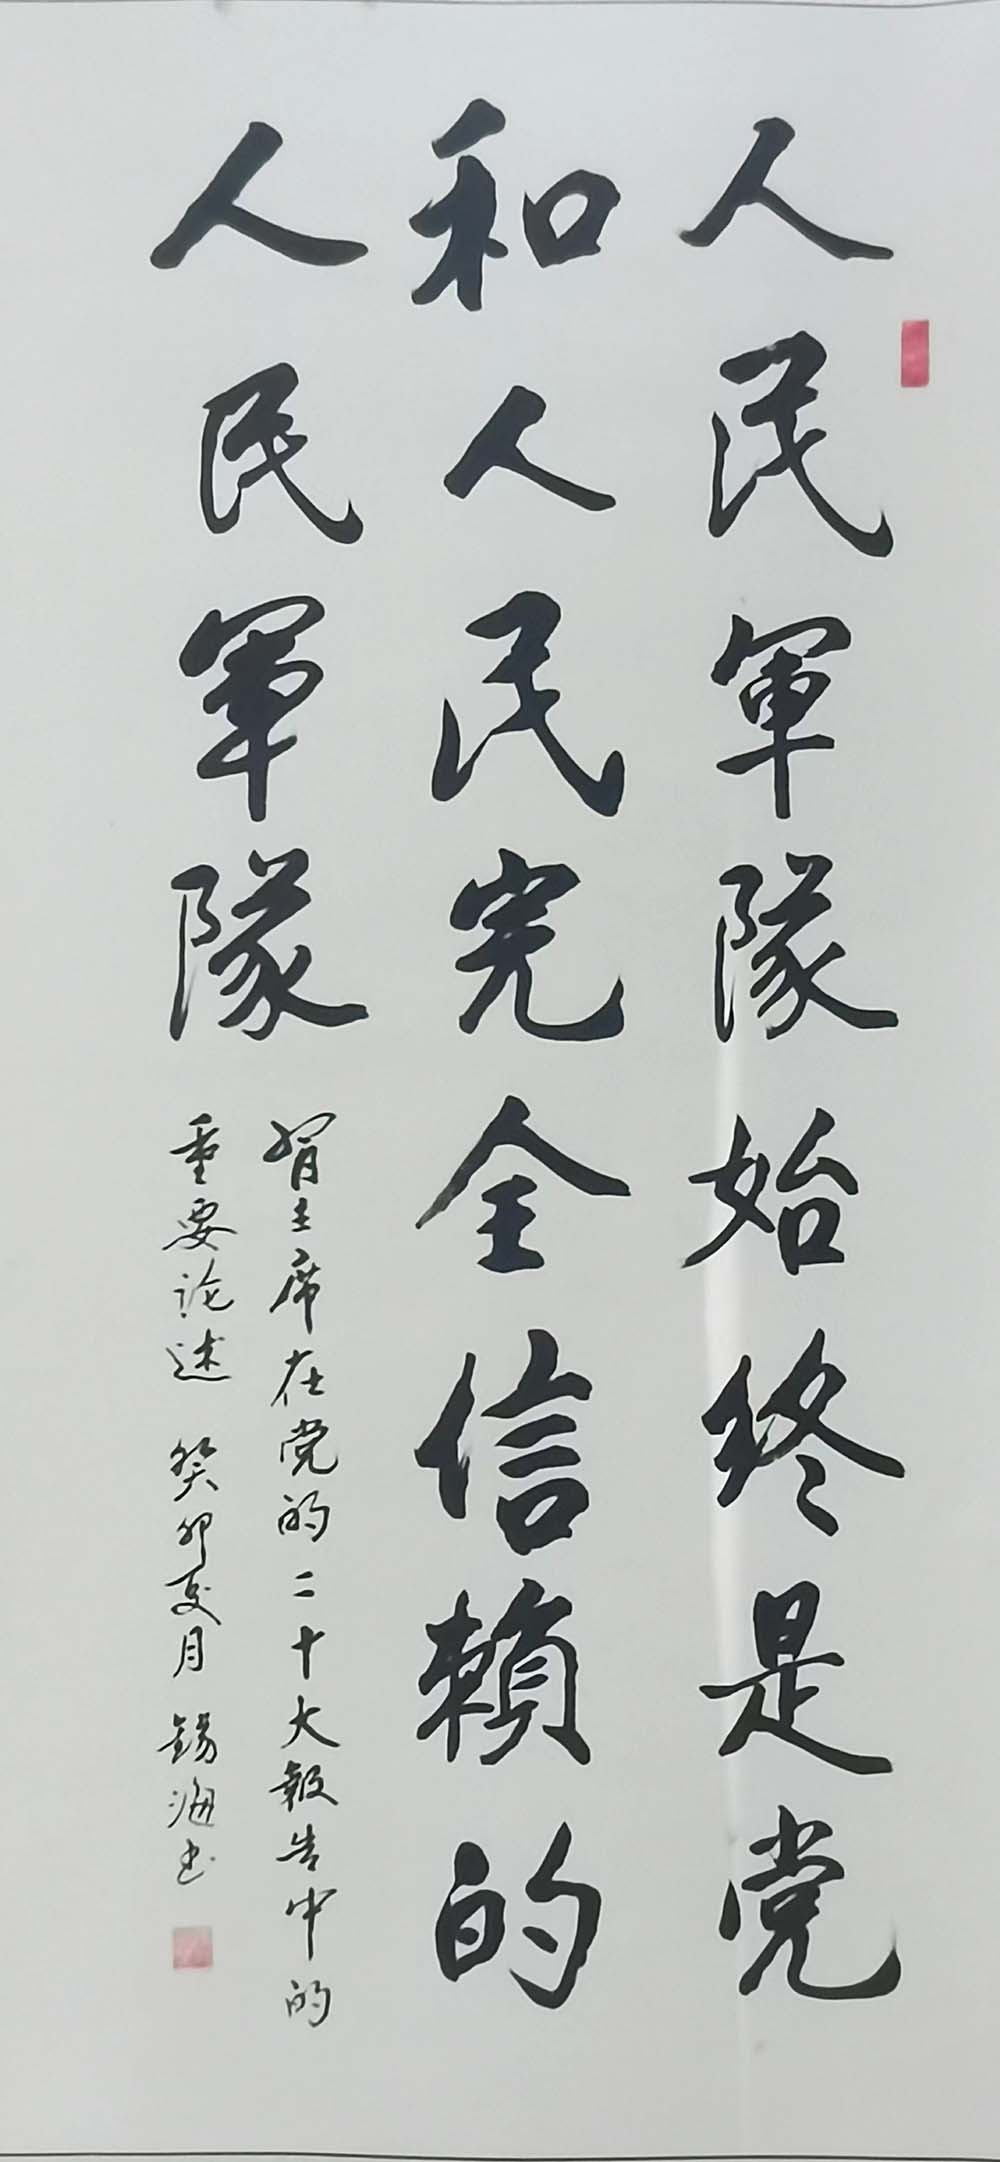 人民軍隊始终是党
和人民完全信賴的
人民軍隊
習主席在党的二十大報告中的
重要论述 癸卯夏月 錫海书